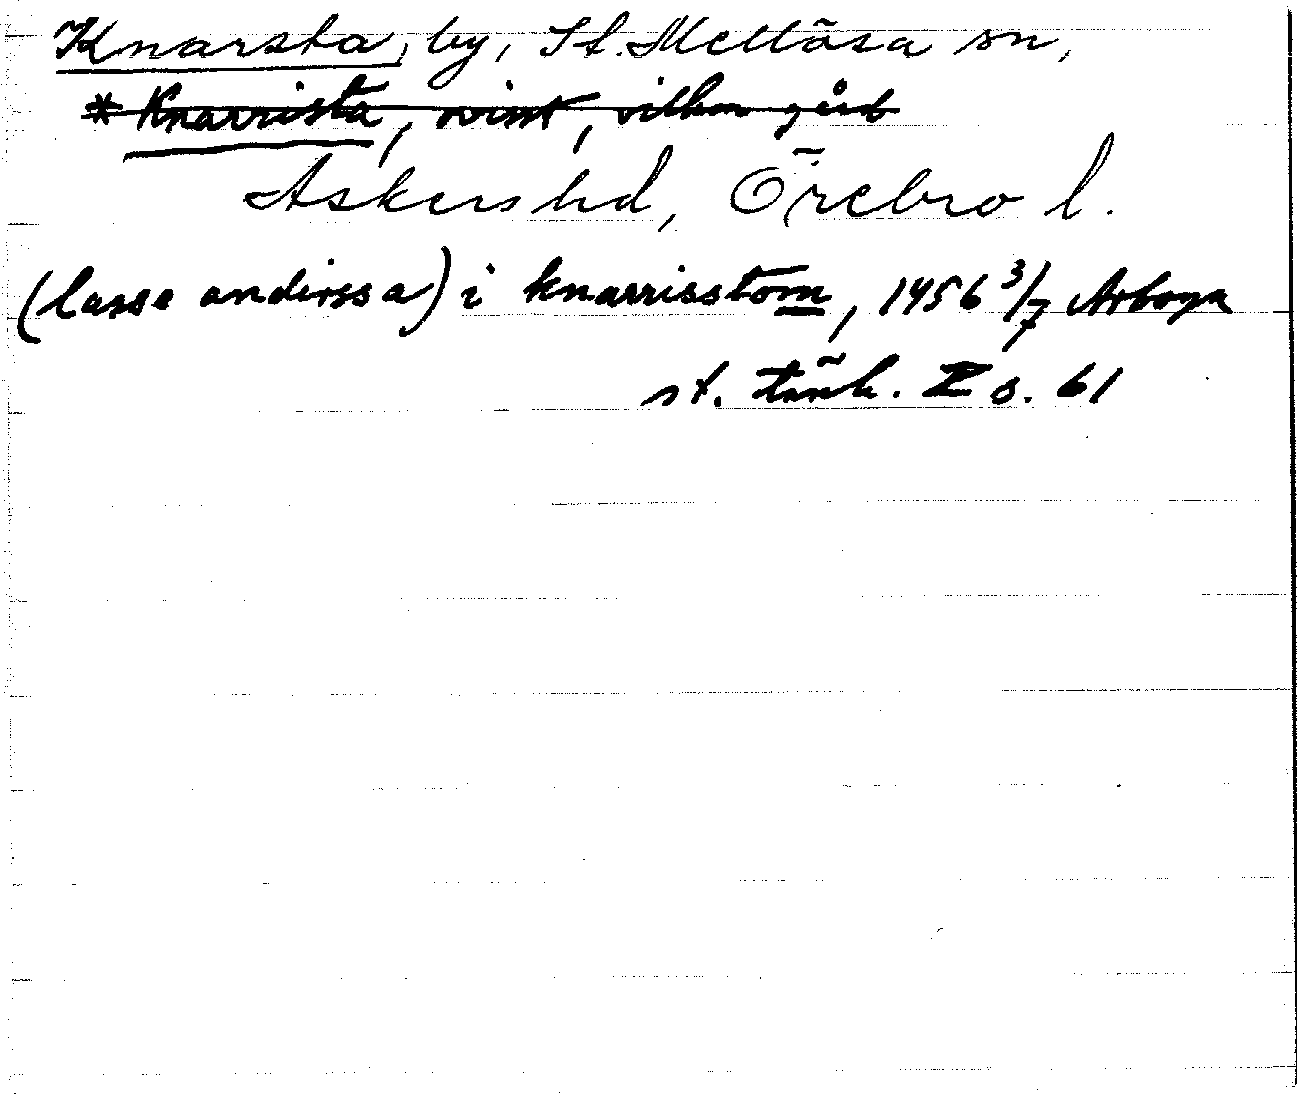 Knarsta, by, St. Mellösa sn,
* Knarrista, ovisst, vilken gård
Askers hd, Örebro l.
(lasse anderssa) i knarrisstom, 1456 3/7 Arboga
st. tänk. I s. 61